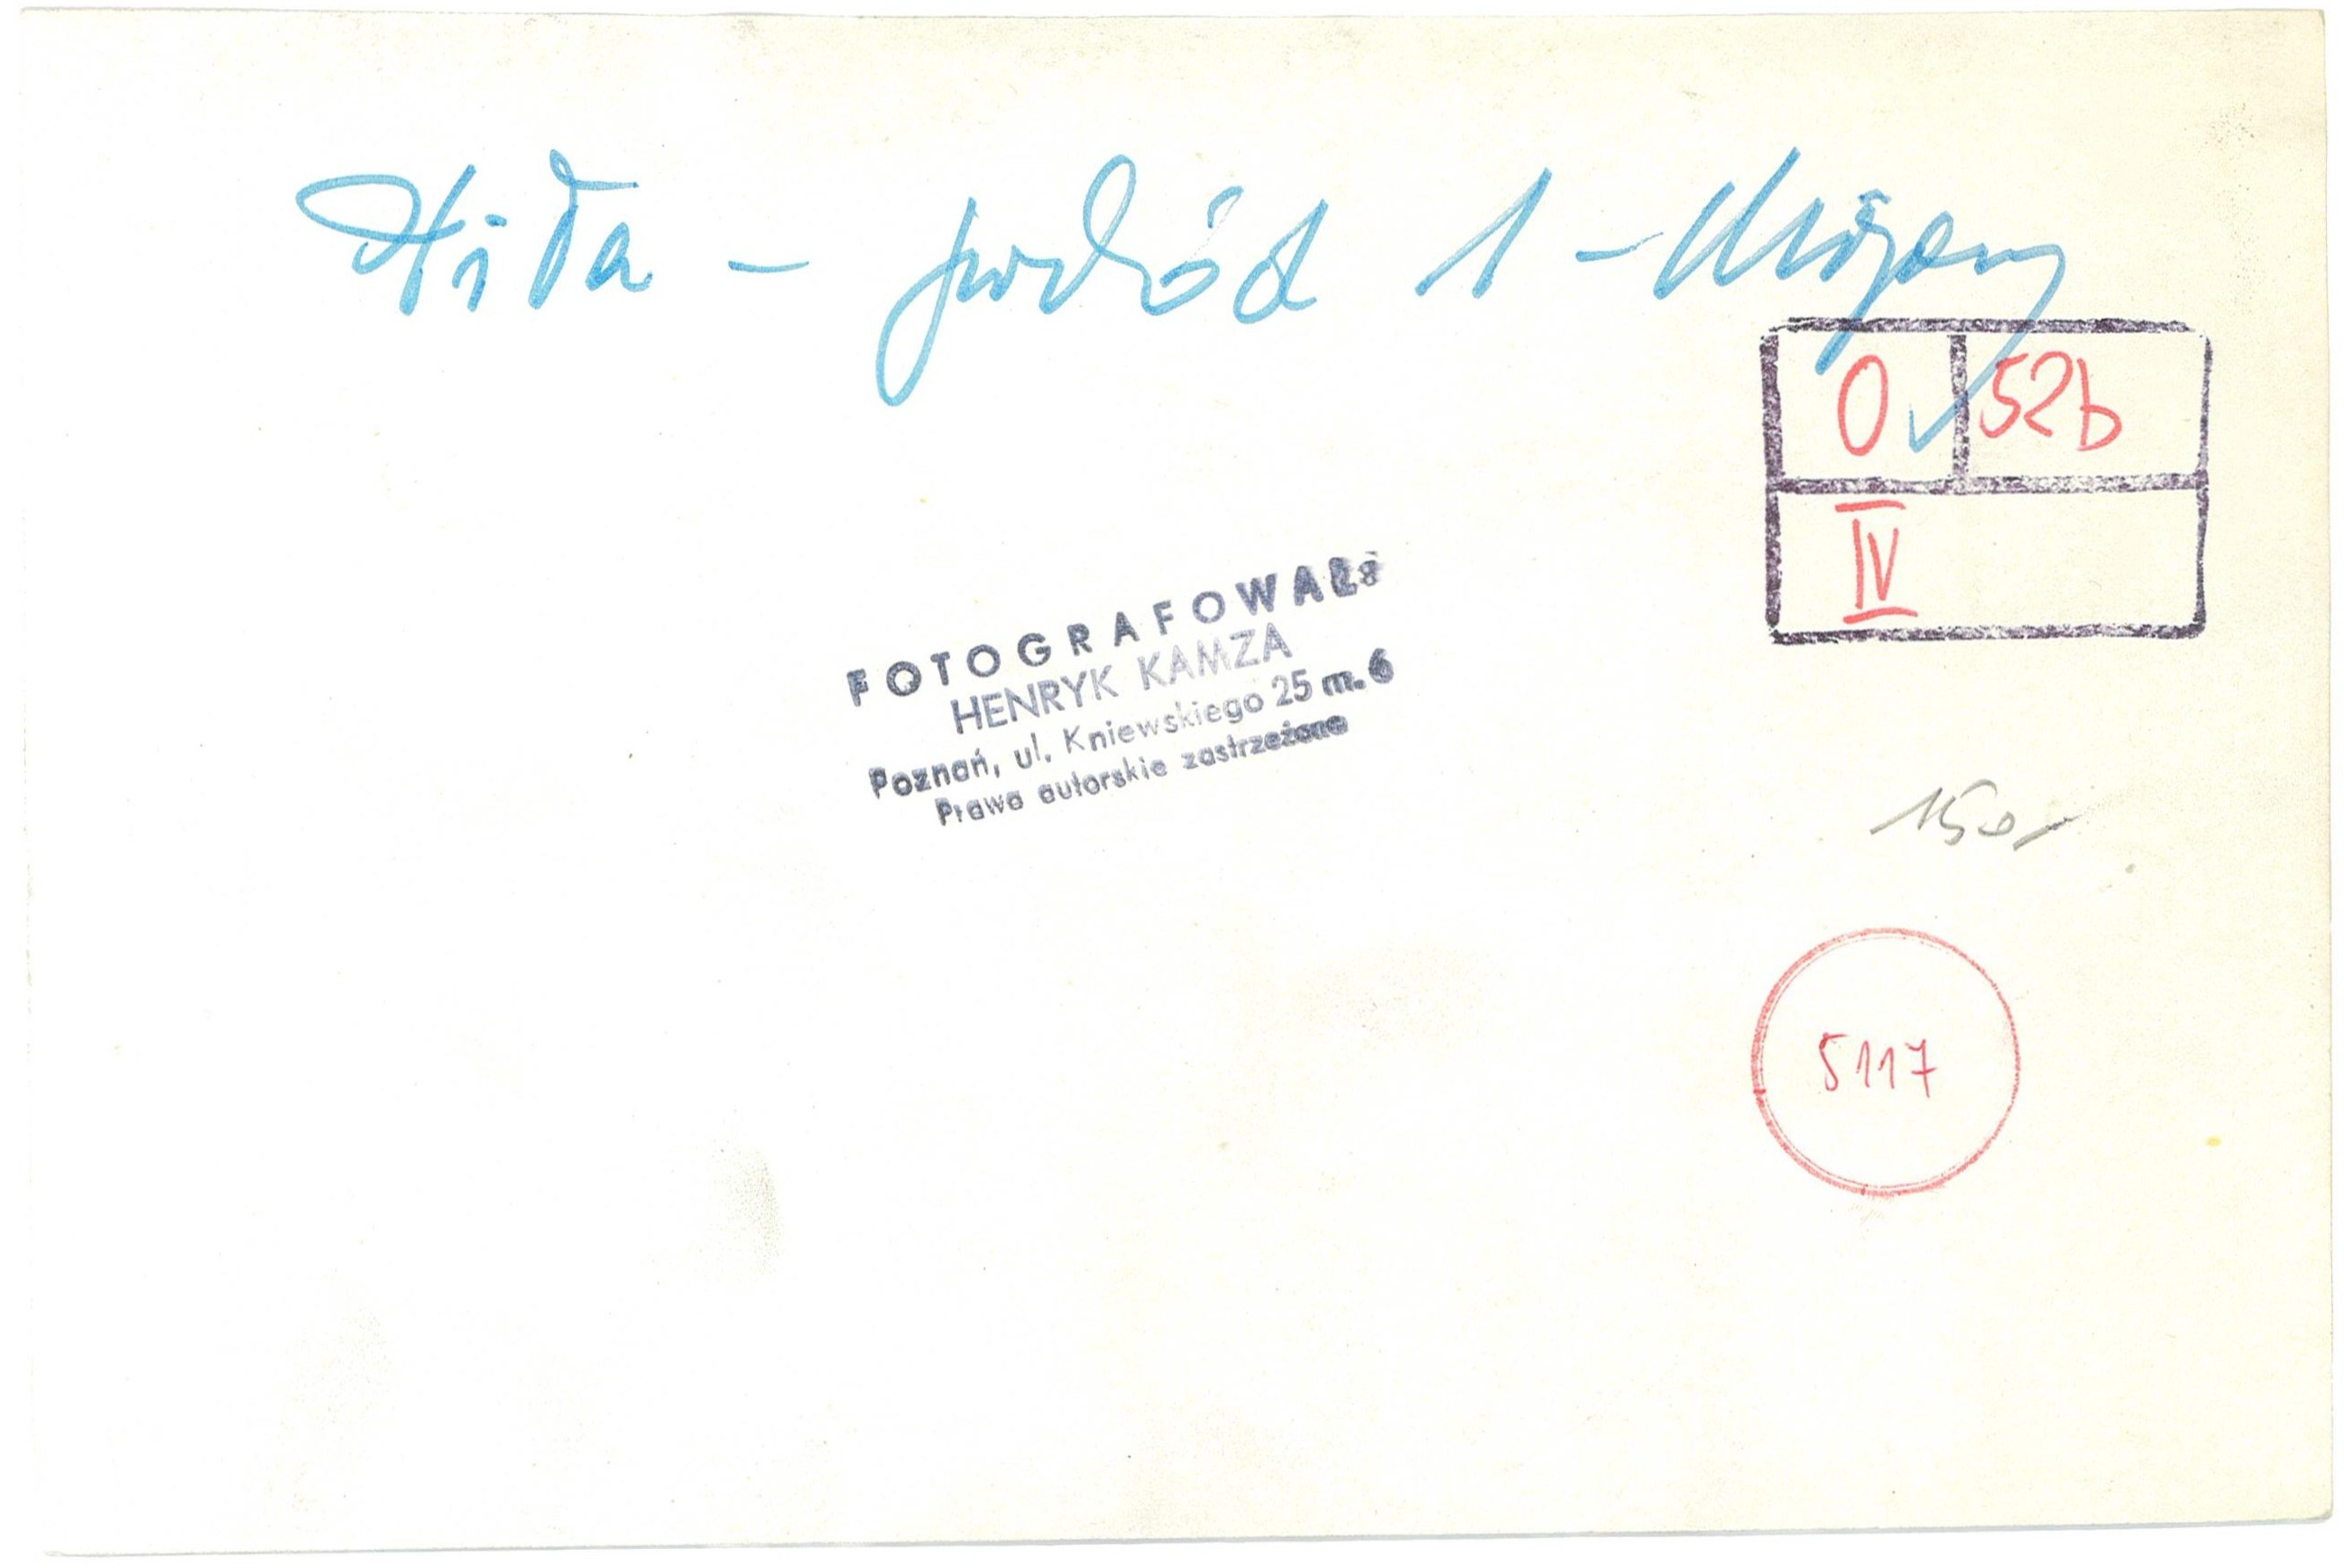 Piła - pochód 1-Majowy
0 52b
IV
FOTOGRAFOWAŁ:
HENRYK KAMZA
Poznań, ul. Kniewskiego 25 m. 6
Prawa autorskie zastrzeżone
150,-
5117